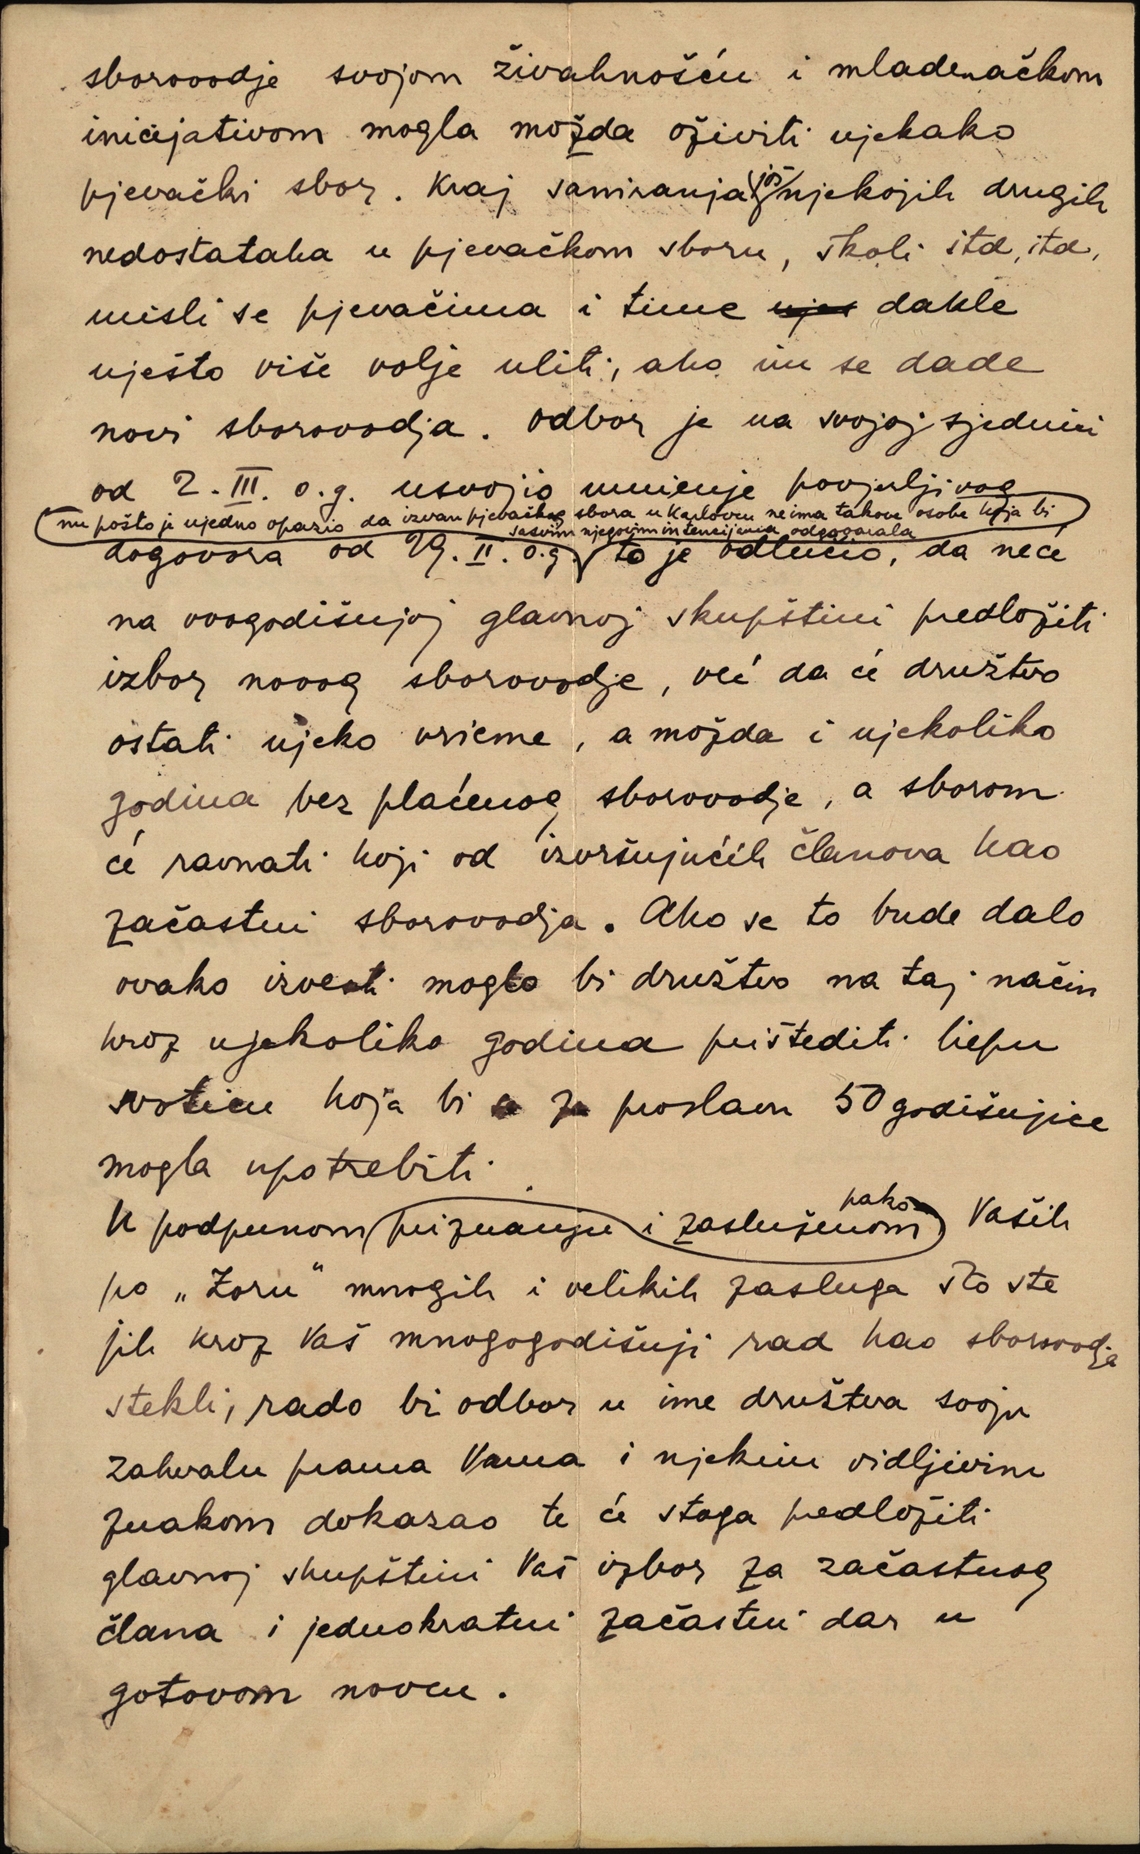 sborovodje svojom živahnošću i mladenačkom
inicijativom mogla možda oživiti njekako
pjevački sbor. Kraj saniranja još njekojih drugih
nedostataka u pjevačkom sboru, školi itd, itd,
misli se pjevačima i time njes dakle
nješto više volje uliti, ako im se dade
novi sborovodja. Odbor je na svojoj sjednici
od 2. III. o.g. usvojio mnienje povjerljivog
nu pošto je ujedno opazio da izvan pjevačkog sbora u Karlovcu neima takove osobe koja bi
sasvim njegovim intencijama odgovarala
dogovora od 29. II. o.g. to je odlučio, da neće
na ovogodišnjoj glavnoj skupštini predložiti
izbor novog sborovodje, već da će družtvo
ostati njeko vrieme, a možda i njekoliko
godina bez plaćenog sborovodje, a sborom
će ravnati koji od izvršujućih članova kao
začastni sborovodja. Ako se to bude dalo
ovako izvesti moglo bi družtvo na taj način
kroz njekoliko godina prištediti liepu
svoticu koja bi a za proslavu 50 godišnjice
mogla upotrebiti.
pako
U podpunom priznanju i zasluženom Vaših
po „Zoru" mnogih i velikih zasluga što ste
jih kroz Vaš mnogogodišnji rad kao sborovodja
stekli, rado bi odbor u ime družtva svoju
zahvalu prama Vama i njekim vidljivim
znakom dokazao te će stoga predložiti
glavnoj skupštini Vaš izbor za začastnog
člana i jednokratni začastni dar u
gotovom novcu.